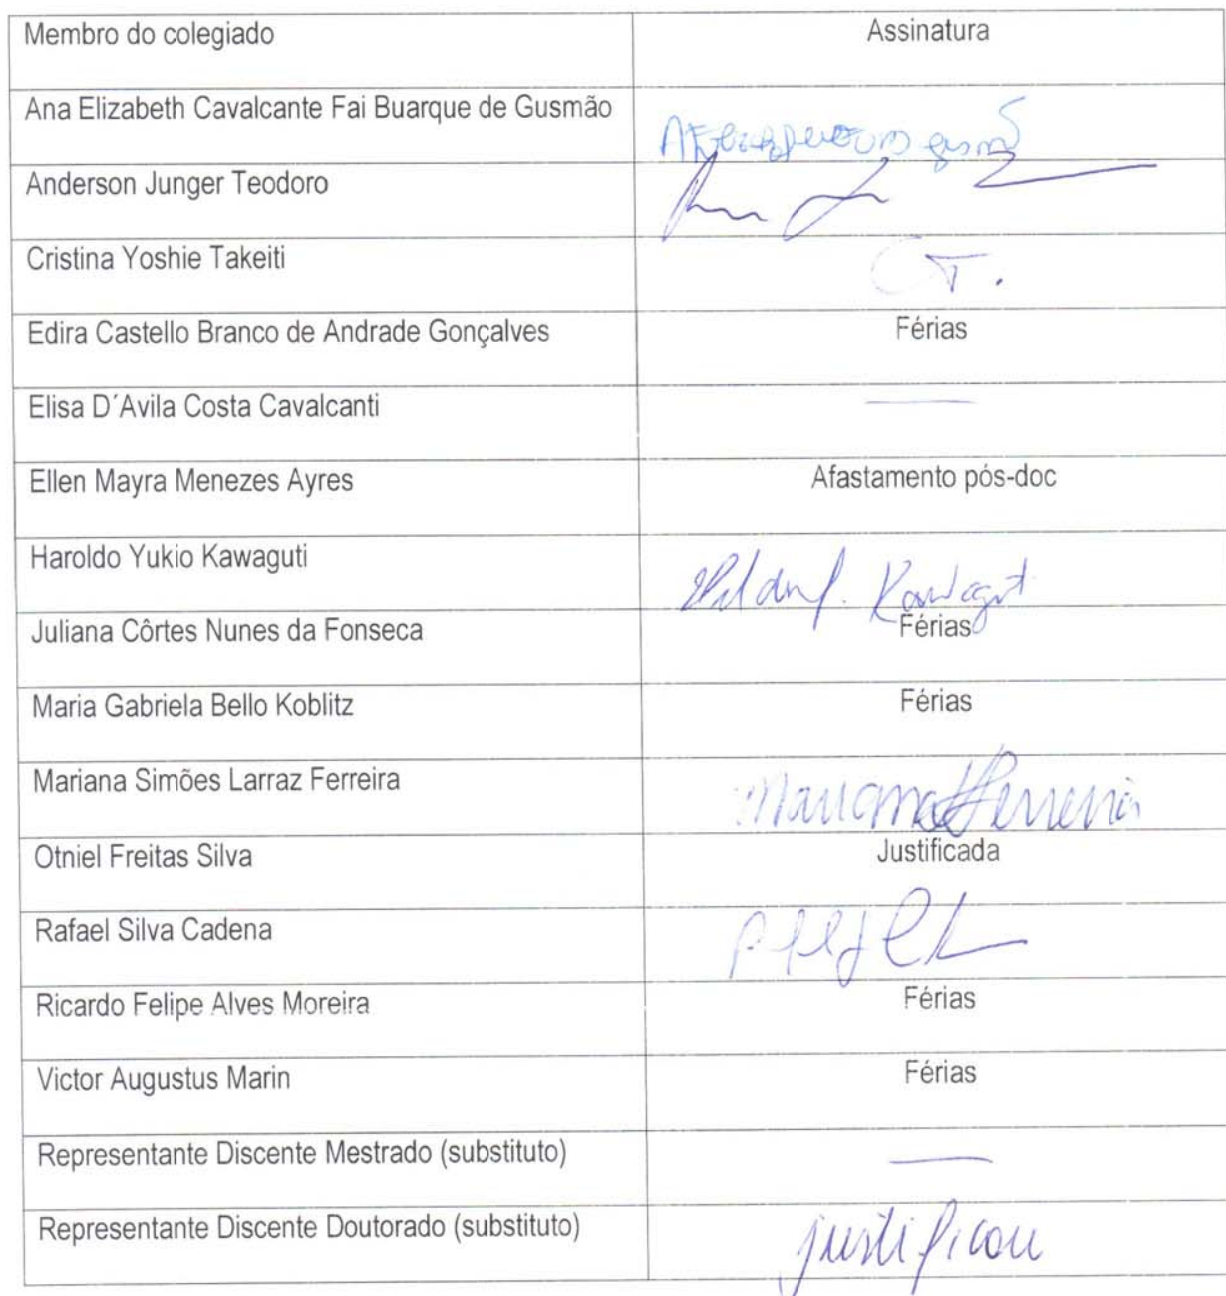 Membro do colegiado Assinatura
Ana Elizabeth Cavalcante Fai Buarque de Gusmão
Anderson Junger Teodoro
Cristina Yoshie Takeiti CT.
Edira Castello Branco de Andrade Gonçalves Férias
Elisa D´Avila Costa Cavalcanti —
Ellen Mayra Menezes Ayres Afastamento pós-doc
Haroldo Yukio Kawaguti
Juliana Côrtes Nunes da Fonseca Férias
Maria Gabriela Bello Koblitz Férias
Mariana Simões Larraz Ferreira Mariana Ferreira
Otniel Freitas Silva Justificada
Rafael Silva Cadena
Ricardo Felipe Alves Moreira Férias
Victor Augustus Marin Férias
Representante Discente Mestrado (substituto) —
Representante Discente Doutorado (substituto) justificou